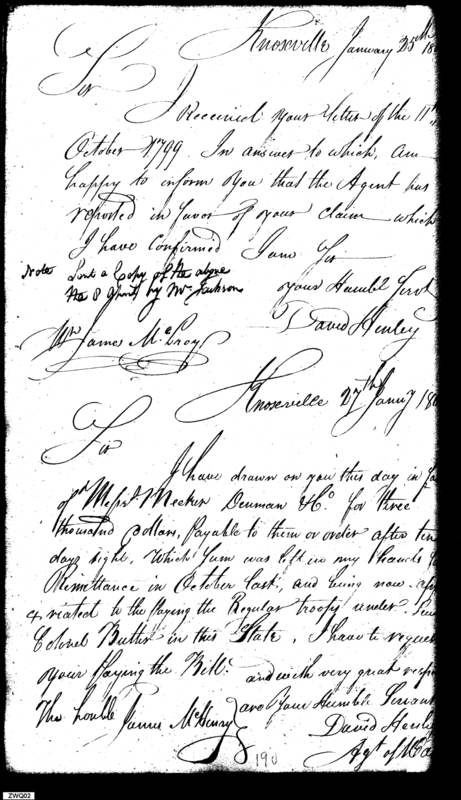 Knoxville January 25th 18
Sir
I Received your letter of the 11th
October 1799. In answer to which, am
happy to inform you that the Agent has
reported in favor of your claim which
I have confirmed I am Sir
Note Sent a Copy of the above your Humbl Servt
the 8 by Mr Jackson
David Henley
Mr James McElroy
Knoxville 27th Janry 18
Sir
I have drawn on you this day in fa
of Messrs Meeker Denman & Co. for three
thousand dollars, payable to them or order after ten
days sight, Which Sum was left in my Hands
Remittance in October last, and being now
to the paying the Regular troops under
Colonel Butler in this State, I have to reques
your Paying the Bill. and with very great resp
The honble James McHenry are Your Humble Servant
David Henle
Agt of Wa
190
ZWQ02